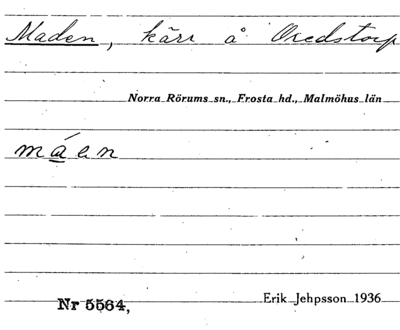 Maden, kärr å Oredstorp
Norra Rörums sn., Frosta hd., Malmöhus län
máen
Erik Jehpsson 1936
Nr 5564,